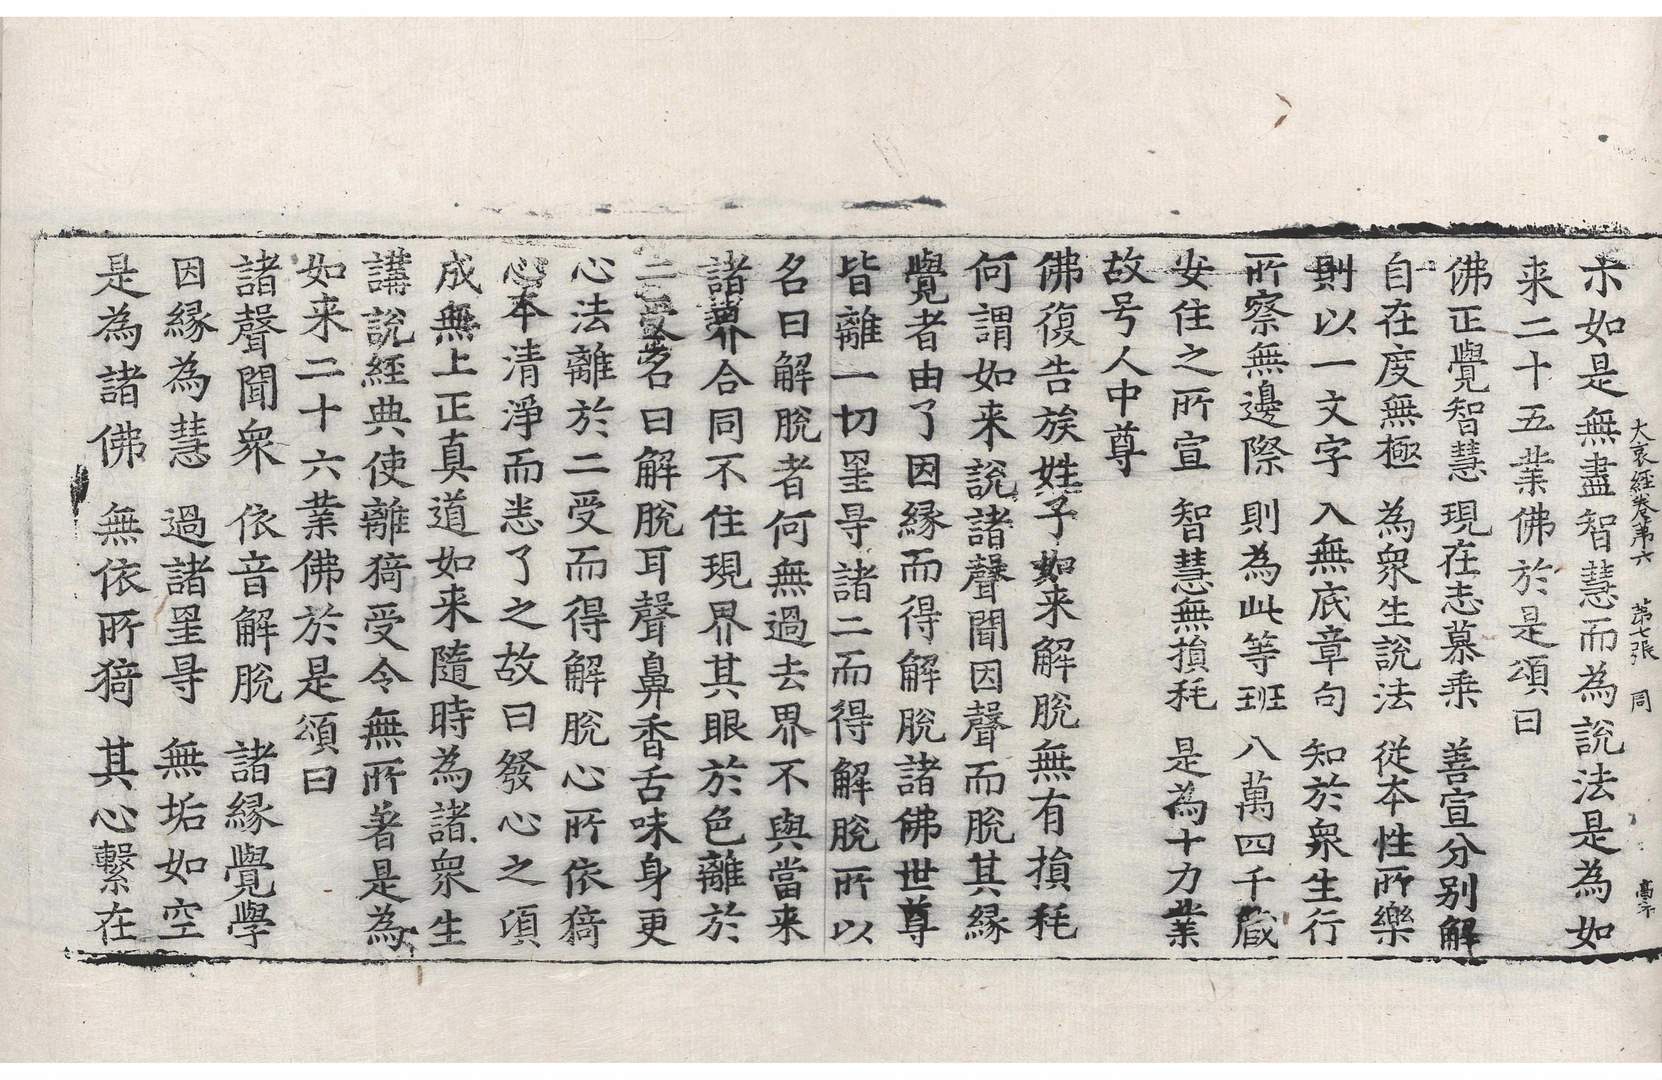 大哀經卷第六　第七張　同
示如是無盡智慧而為說法是為如
来二十五業佛於是頌曰
佛正覺智慧　現在志慕乘　善宣分別解
自在度無極　為衆生說法　從夲性所樂
則以一文字　入無底章句　知於衆生行
所察無邊際　則為此等班　八萬四千藏
安住之所宣　智慧無損耗　是為十力業
故号人中尊
佛復告族姓子如来解脫無有損耗
何謂如来說諸聲聞因聲而脫其緣
覺者由了因緣而得解脫諸佛世尊
皆離一切罣导諸二而得解脫所以
名曰解脫者何無過去界不與當来
諸界合同不住現界其眼於色離於
二受名曰解脫耳聲鼻香舌味身更
心法離於二受而得解脫心所依猗
心夲清淨而悉了之故曰發心之頃
成無上正真道如来隨時為諸衆生
講說經典使離猗受令無所著是為
如来二十六業佛於是頌曰
諸聲聞衆　依音解脫　諸緣覺學
因緣為慧　過諸罣导　無垢如空
是為諸佛　無依所猗　其心繫在